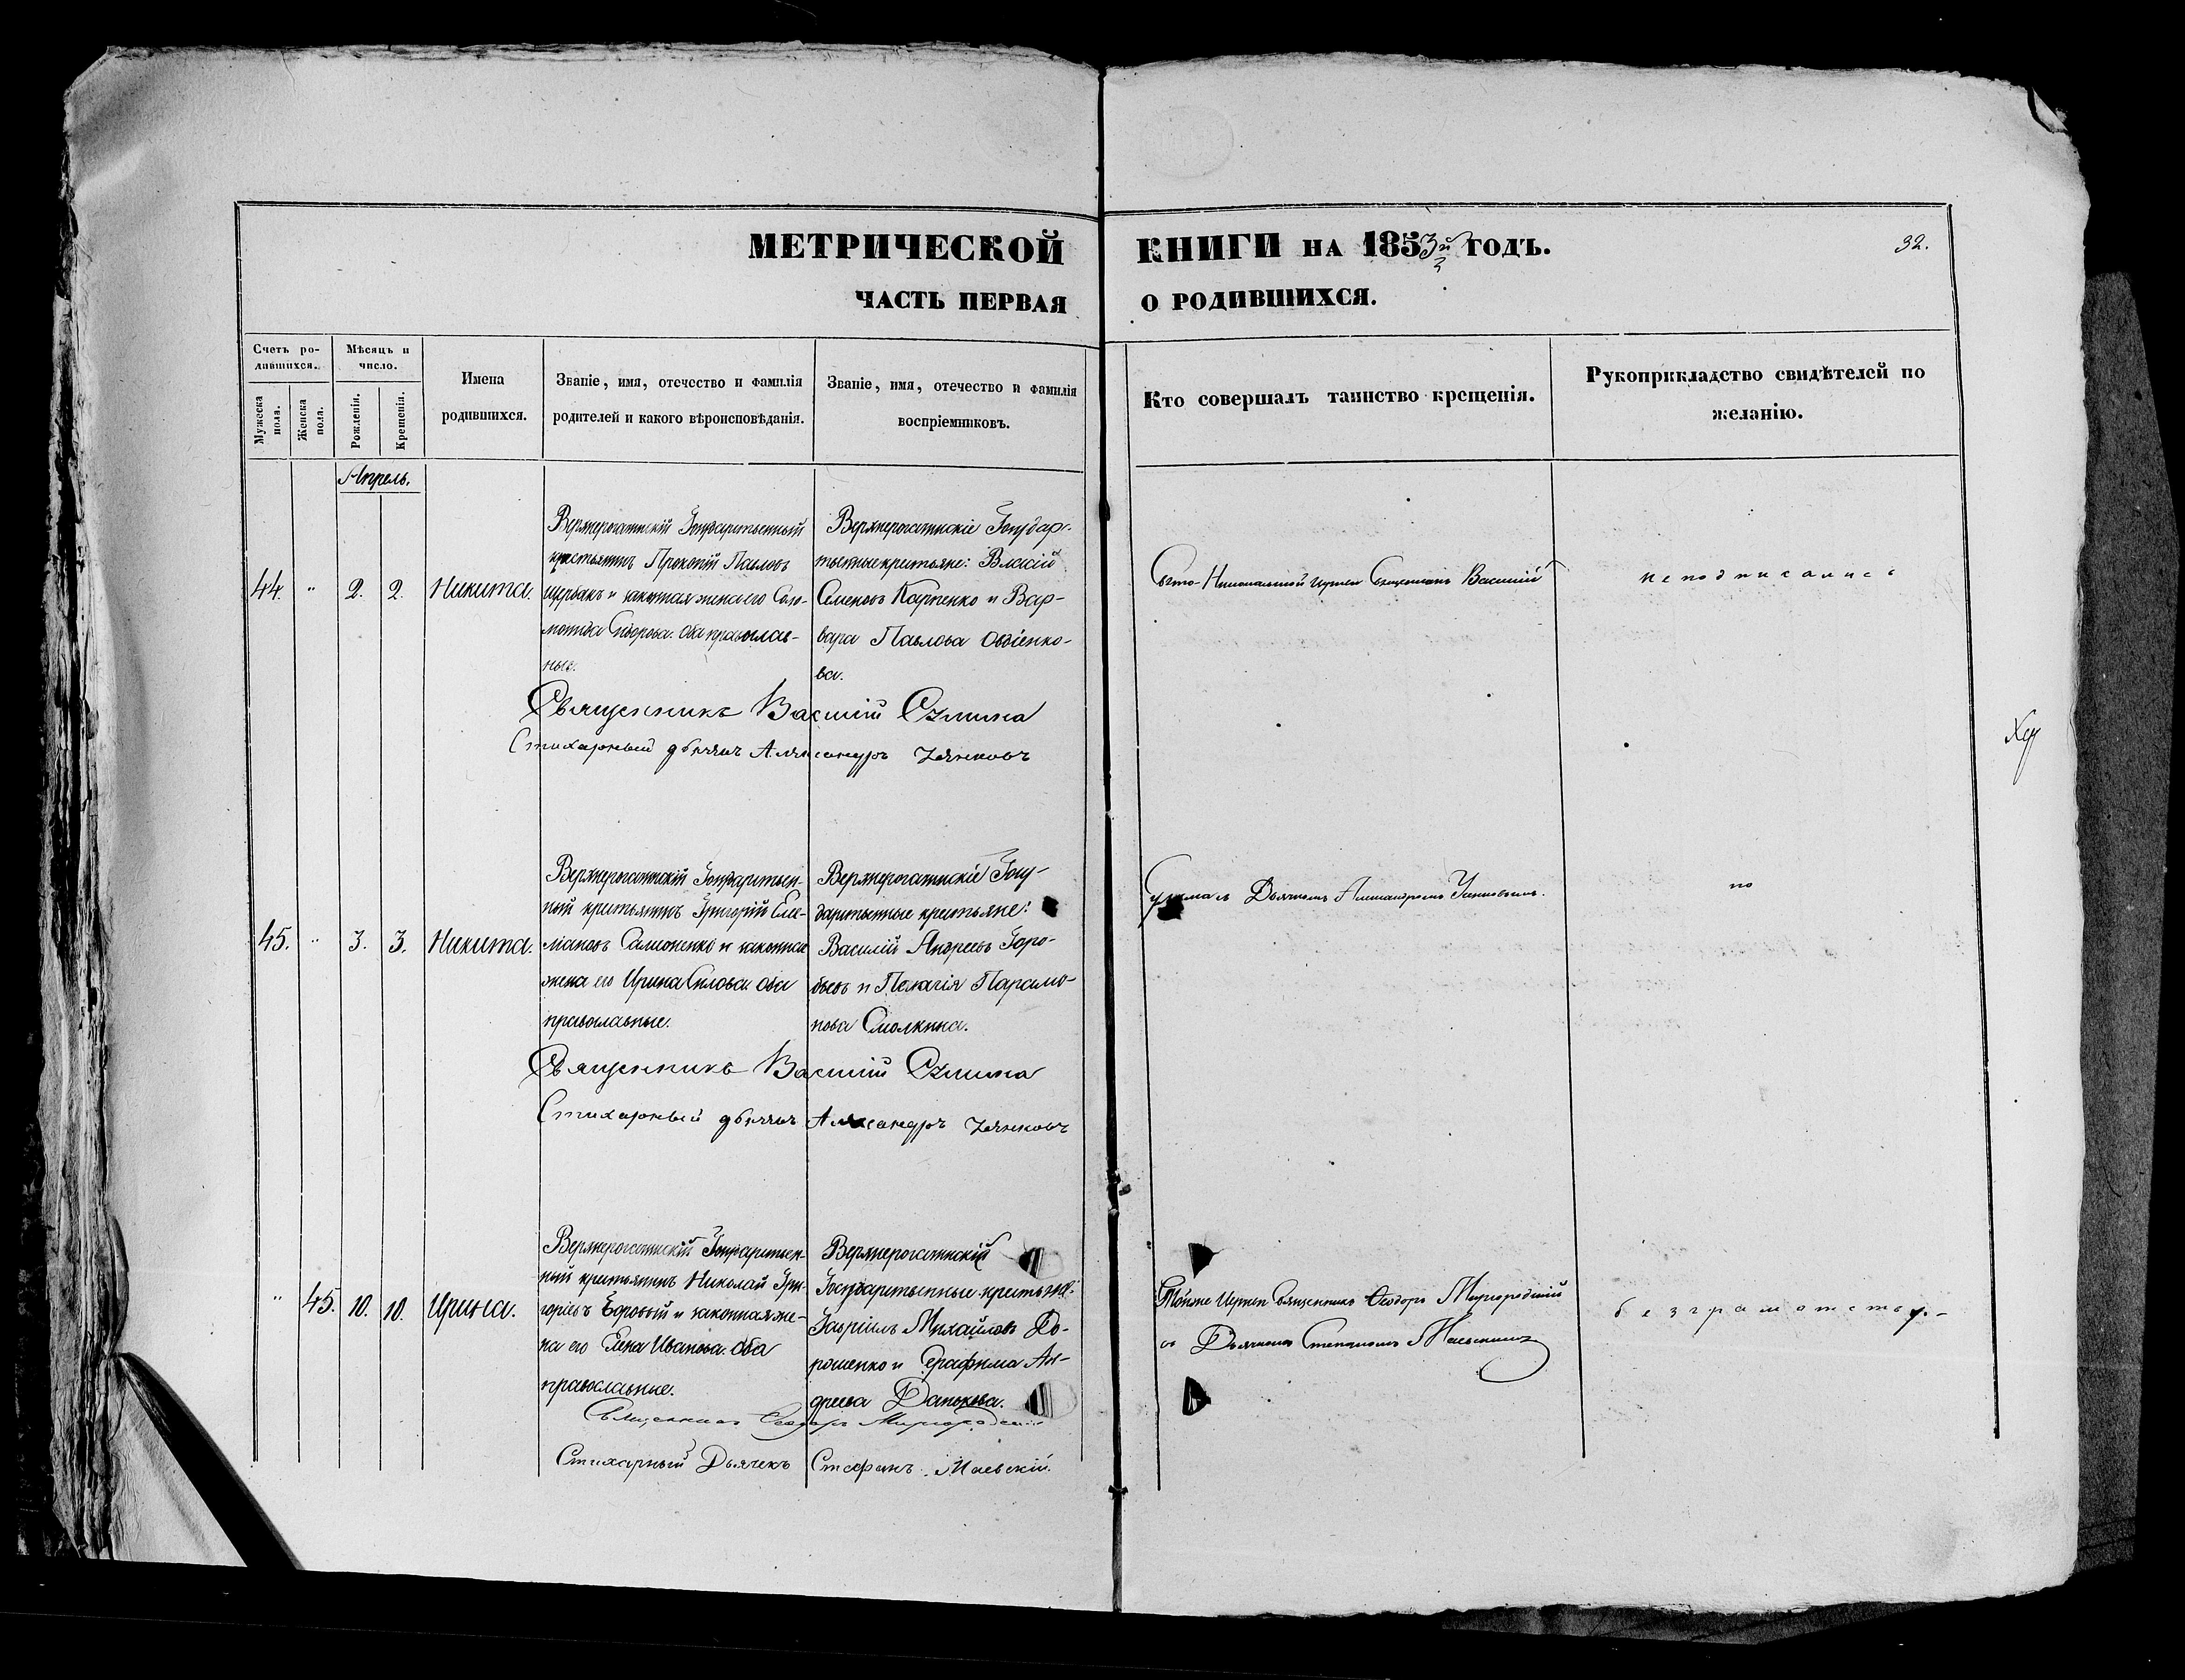 МЕТРИЧЕСКОЙ КНИГИ НА 1853й ГОДЪ.
32.
ЧАСТЬ ПЕРВАЯ О РОДИВШИХСЯ.
Счетъ ро-
дившихся.
Мужеска пола.
Женска пола.
Мѣсяцъ и
число.
Рожденія.
Крещенія.
Имена
родившихся.
Званіе, имя, отечество и фамилія
родителей и какого вѣроисповѣданія.
Званіе, имя, отечество и фамилія
воспріемниковъ.
Кто совершалъ таинство крещенія.
Рукоприкладство свидѣтелей по
желанію.
Апрель.
44. " 2. 2. Никита.
Верхнерогатинскій Государственный
крестьянинъ Прокопій Павловъ
Щербакъ и законная жена его Соло-
монида Сидорова. оба православ-
ные.
Верхнерогатинскіе Государ-
ственные крестьяне: Власій
Семеновъ Карпенко и Вар-
вара Павлова Овдіенко-
ва.
Свято-Николаевской церкви Священникъ Василій
неподписались
Священникъ Василій
Стихарный дьячекъ Александръ
45. " 3. 3. Никита.
Верхнерогатинскій Государствен-
ный крестьянинъ Григорій
Самоненко и законная
жена его Ирина Силова. оба
православные.
Верхнерогатинскіе Госу-
дарственные крестьяне:
Василій Андреевъ Горо-
бьевъ и Пелагія Парамо-
нова Смолкина.
Дьячкомъ Александромъ
по
Священникъ Василій
Стихарный дьячекъ Александръ
" 45. 10. 10. Ирина.
Верхнерогатинскій Государствен-
ный крестьянинъ Николай Гри-
горіевъ Боровый и законная же-
на его Елена Иванова. Оба
православные.
Верхнерогатинскій
Государственные крестьяне:
Гавріилъ Михайловъ До-
рошенко и Серафима Ан-
дреева
Тойже Церкви Священникъ Ѳеодоръ Миргородскій
съ Дьячкомъ Степаномъ Маевскимъ
безграмотству.
Священникъ Ѳеодоръ Миргородскій
Стихарный Дьячекъ Стефанъ Маевскій.